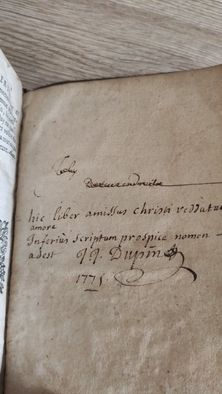 hic liber amissus christi reddatur
amore
Inferius scriptum prospice nomen
adest J J Dupin
1775